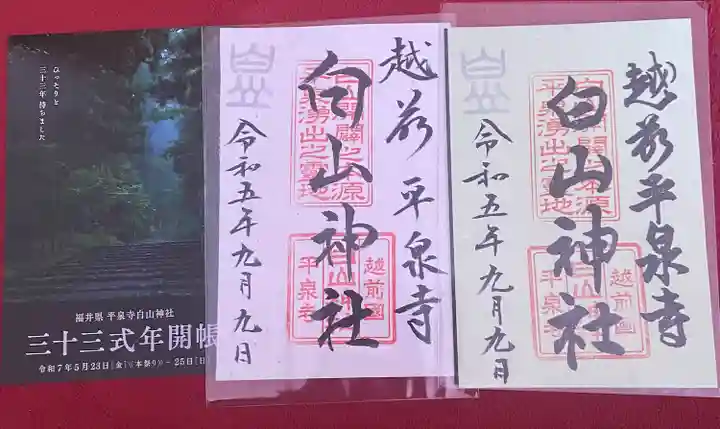 ひっそりと
三十三年 待ちました
福井県 平泉寺白山神社
三十三式年開帳
令和7年5月23日[金](本祭り) - 25日[日
越前平泉寺
白山神社
令和五年九月九日
白山開闢之本源
平泉湧出之靈地
越前國
白山
平泉寺
越前平泉寺
白山神社
令和五年九月九日
白山開闢之本源
平泉湧出之靈地
越前國
白山
平泉寺